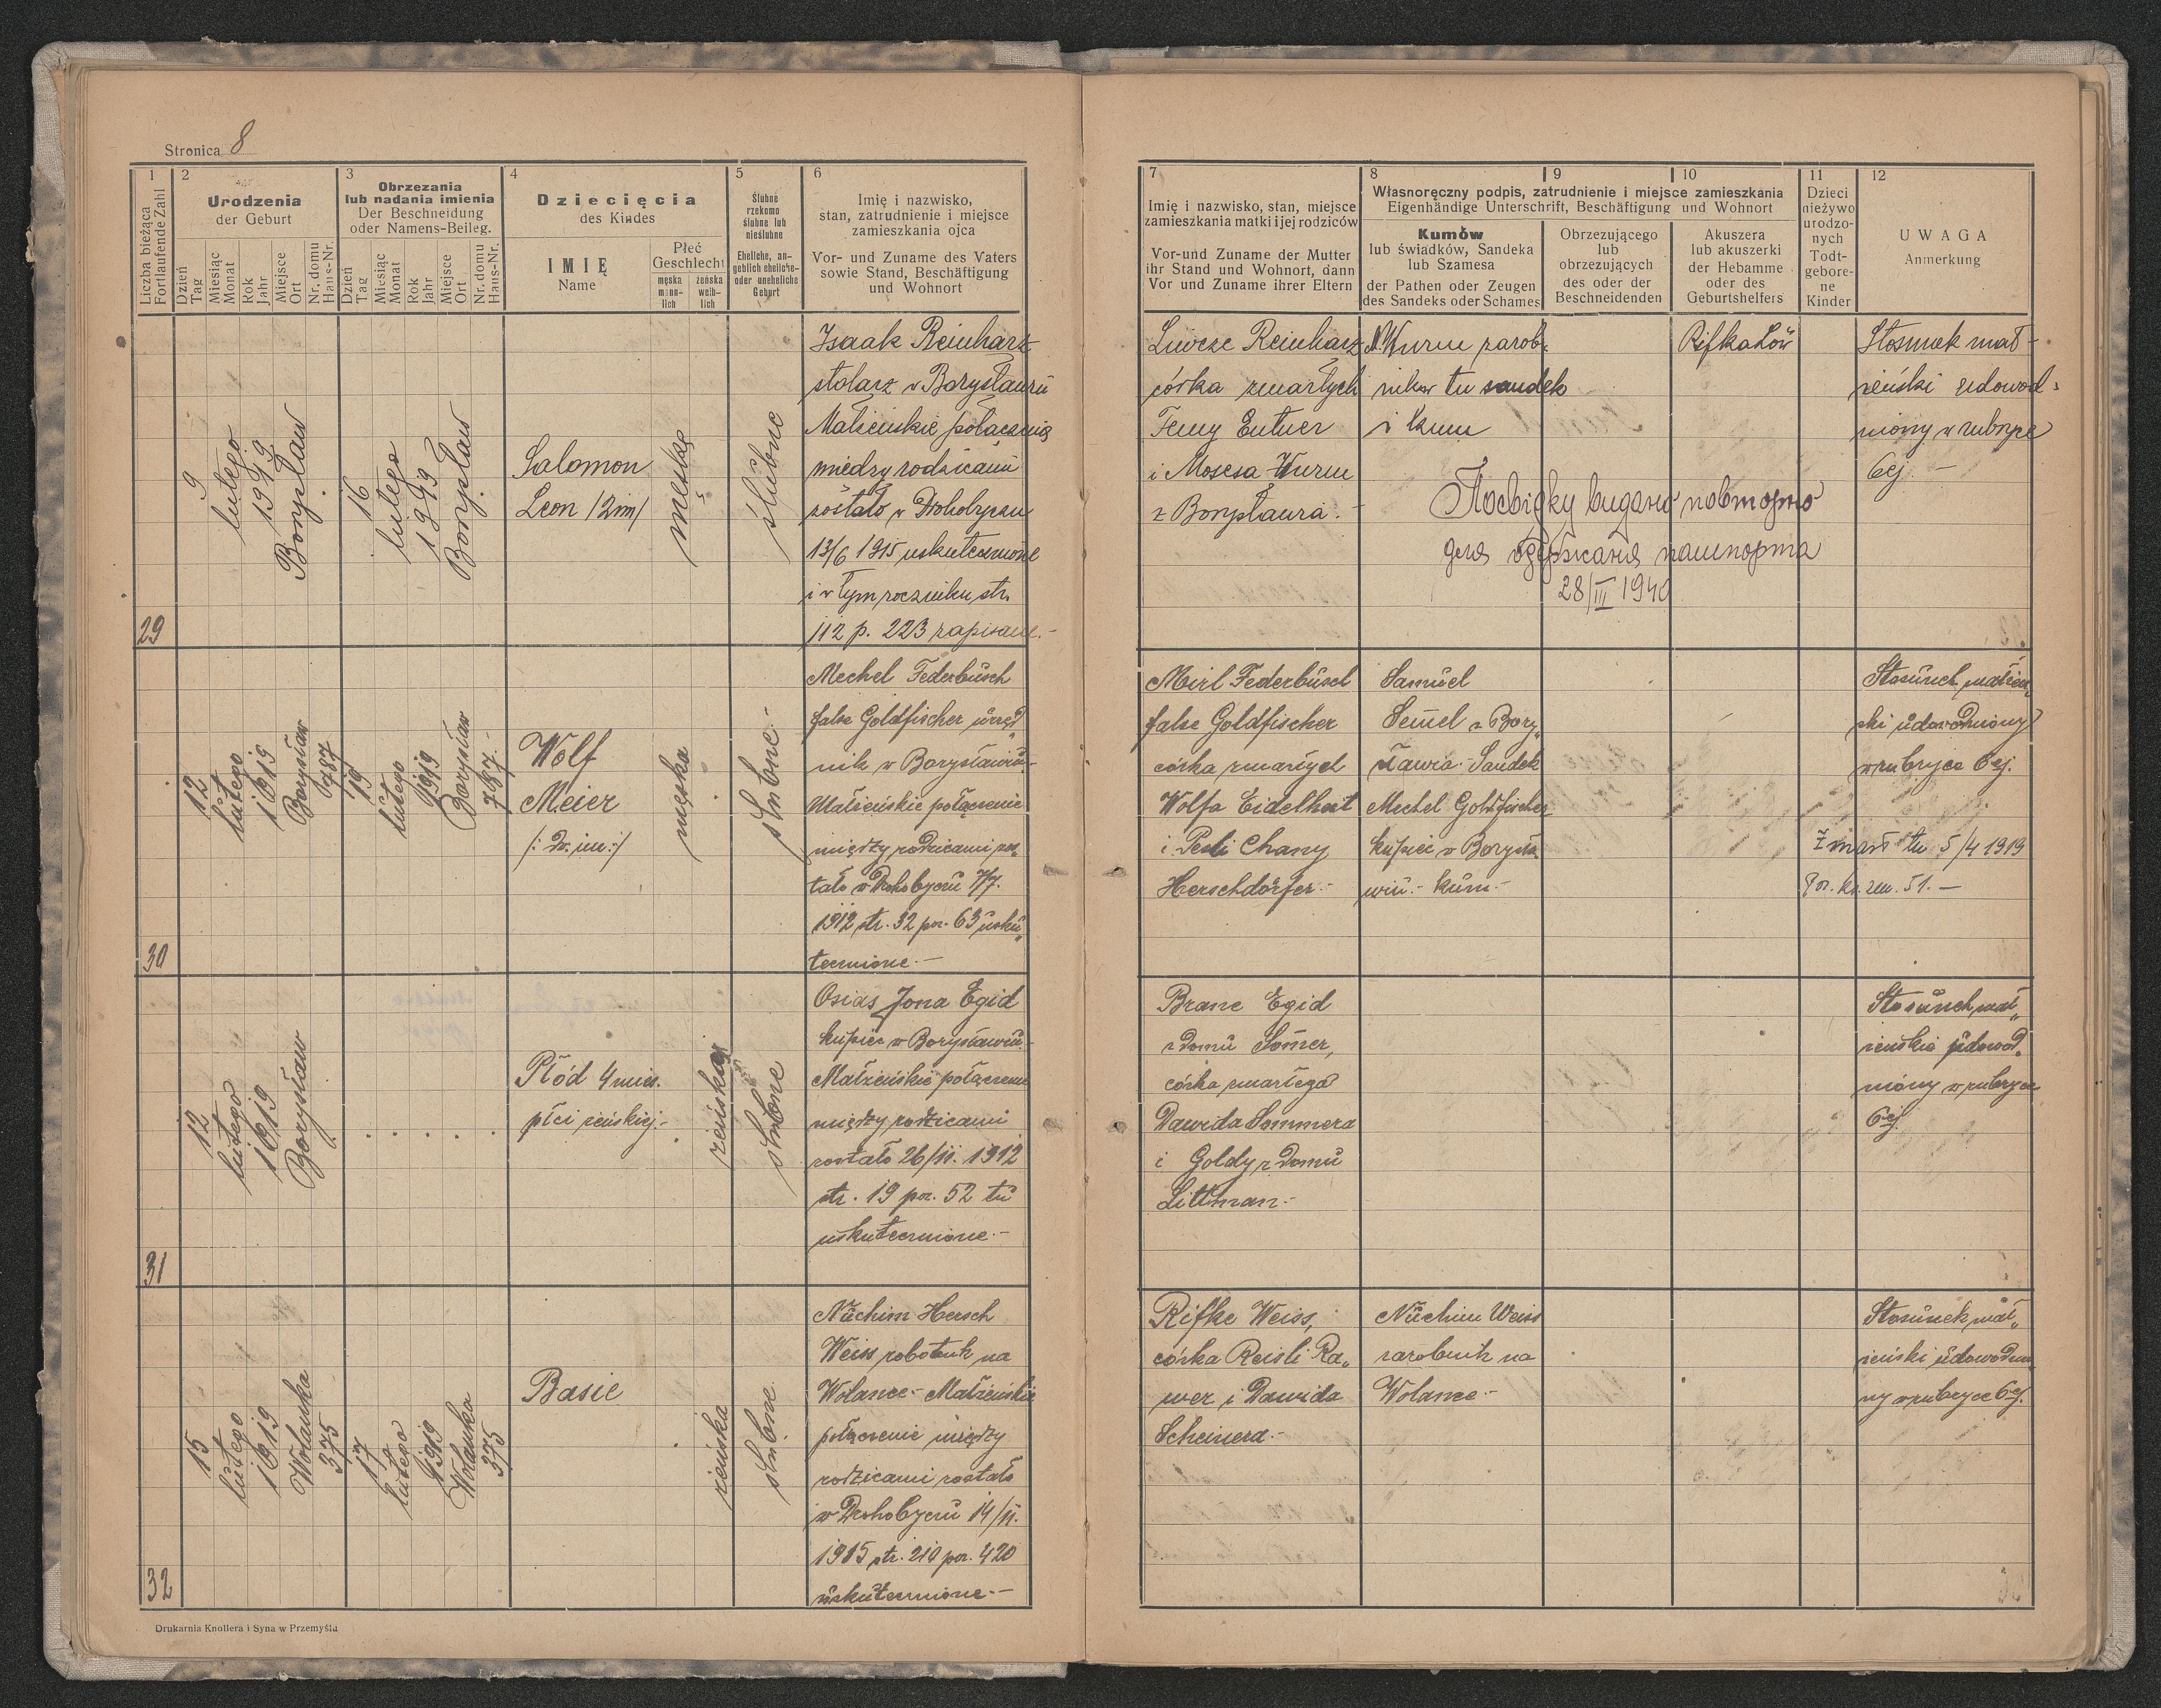 Stronica 8
1
Liczba bieżąca
Fortlaufende Zahl
2
Urodzenia
der Geburt
Dzień
Tag
Miesiąc
Monat
Rok
Jahr
Miejsce
Ort
Nr. domu
Haus-Nr.
3
Obrzezania
lub nadania imienia
Der Beschneidung
oder Namens-Beileg.
Dzień
Tag
Miesiąc
Monat
Rok
Jahr
Miejsce
Ort
Nr. domu
Haus-Nr.
4
Dziecięcia
des Kindes
IMIĘ
Name
Płeć
Geschlecht
męska
männ-
lich
żeńska
weib-
lich
5
Ślubne
rzekomo
ślubne lub
nieślubne
Eheliche, an-
geblich eheliche-
oder uneheliche
Geburt
6
Imię i nazwisko,
stan, zatrudnienie i miejsce
zamieszkania ojca
Vor- und Zuname des Vaters
sowie Stand, Beschäftigung
und Wohnort
7
Imię i nazwisko, stan, miejsce
zamieszkania matki i jej rodziców
Vor-und Zuname der Mutter
ihr Stand und Wohnort, dann
Vor und Zuname ihrer Eltern
8
9
10
Własnoręczny podpis, zatrudnienie i miejsce zamieszkania
Eigenhändige Unterschrift, Beschäftigung und Wohnort
Kumów
lub świadków, Sandeka
lub Szamesa
der Pathen oder Zeugen
des Sandeks oder Schames
Obrzezującego
lub
obrzezujących
des oder der
Beschneidenden
Akuszera
lub akuszerki
der Hebamme
oder des
Geburtshelfers
11
Dzieci
nieżywo
urodzo-
nych
Todt-
gebore-
ne
Kinder
12
UWAGA
Anmerkung
29
9
lutego
1919
Borysław
16
lutego
1919
Borysław
Salomon
Leon /2im/
męska
ślubne
Isaak Reinharz
stolarz w Borysławiu
Małżeńskie połączenie
między rodzicami
zostało w Drohobyczu
13/6 1915 uskutecznione
i w tym roczniku str.
112 p. 223 zapisane.-
Reinharz
córka zmarłych
i Mosesa Wurm
z Borysława.-
Wurm zarob-
nik tu sandek
i kum
Rifka Löw
Stosunek mał-
żeński udowod-
niony w rubryce
6ej.-
Посвідку видано повторно
для одержання пашпорта
28/III 1940
30
12
lutego
1919
Borysław
787
19
lutego
1919
Borysław
787.-
Wolf
Meier
/: dw. im :/
męska
ślubne.-
Mechel Federbusch
false Goldfischer urzęd„
nik w Borysławiu.-
Małżeńskie połączenie
między rodzicami zos„
tało w Drohobyczu 7/7.
1912 str. 32 poz. 63 usku„
tecznione.-
Mirl Federbusch
false Goldfischer
córka zmarłych
Wolfa Eidelheit
i Pesli Chany
Herschdörfer.-
Samuel
Semel z Bory„
sławia. Sandek
Mechel Goldfischer
kupiec w Borysła„
wiu.- kum.-
Stosunek małżeń„
ski udowodniony
w rubryce 6ej.
Zmarł tu 5/4 1919
Poz. ks. zm. 51.-
31
12
lutego
1919
Borysław
Płód 4 mies.
płci żeńskiej.-
żeńska
ślubne
Osias Jona Egid
kupiec w Borysławiu.-
Małżeńskie połączenie
między rodzicami
zostało 26/11. 1912
str. 19 poz. 52 tu
uskutecznione.-
Brane Egid
z domu Somer,
córka zmarłego
Dawida Sommera
i Goldy z domu
Littman.-
Stosunek mał„
żeński udowod„
niony w rubryce
6ej.
32
15
lutego
1919
Wolanka
375
17
lutego
1919
Wolanka
375
Basie
żeńska
ślubne
Nuchim Hersch
Weiss robotnik na
Wolance.- Małżeńskie
połączenie między
rodzicami zostało
w Drohobyczu 14/11.
1915 str. 210 poz. 420
uskutecznione.-
Rifke Weiss,
córka Reisli Ra„
wer i Dawida
Scheinera.-
Nuchim Weiss
zarobnik na
Wolance.-
Stosunek mał„
żeński udowodnio„
ny w rubryce 6ej.
Drukarnia Knollera i Syna w Przemyślu